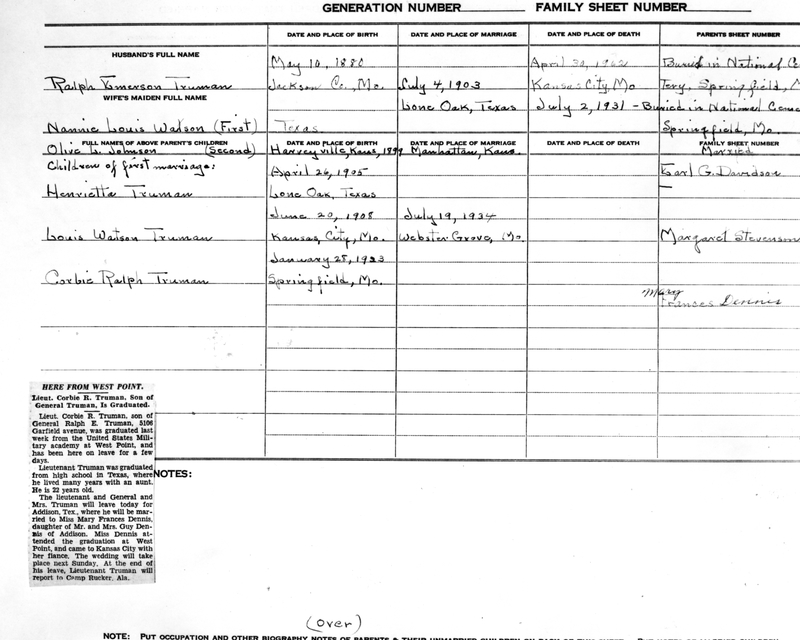 GENERATION NUMBER FAMILY SHEET NUMBER
DATE AND PLACE OF BIRTH DATE AND PLACE OF MARRIAGE DATE AND PLACE OF DEATH PARENTS SHEET NUMBER
HUSBAND'S FULL NAME May 10, 1880 April 30, 1962 Buried in National Ce
Ralph Emerson Truman Jackson Co., Mo. July 4, 1903 Kansas City, Mo tery, Springfield, M
WIFE'S MAIDEN FULL NAME Lone Oak, Texas July 2, 1931 - Buried in National Ceme
Nannie Louis Watson (First) Texas Springfield, Mo.
FULL NAMES OF ABOVE PARENT'S CHILDREN DATE AND PLACE OF BIRTH DATE AND PLACE OF MARRIAGE DATE AND PLACE OF DEATH FAMILY SHEET NUMBER
Olive L. Johnson (Second) Harveyville, Kans, 1899 Manhattan, Kans. Married
Children of first marriage: April 26, 1905 Earl G. Davidson
Henrietta Truman Lone Oak, Texas
June 20, 1908 July 19, 1934
Louis Watson Truman Kansas City, Mo. Webster Grove, Mo. Margaret Stevenson
January 28, 1923
Corbie Ralph Truman Springfield, Mo.
Mary
Frances Dennis
HERE FROM WEST POINT.
Lieut. Corbie R. Truman, Son of
General Truman, Is Graduated.
Lieut. Corbie R. Truman, son of
General Ralph E. Truman, 5106
Garfield avenue, was graduated last
week from the United States Mili-
tary academy at West Point, and
has been here on leave for a few
days.
Lieutenant Truman was graduated
from high school in Texas, where
he lived many years with an aunt.
He is 22 years old.
The lieutenant and General and
Mrs. Truman will leave today for
Addison, Tex., where he will be mar-
ried to Miss Mary Frances Dennis,
daughter of Mr. and Mrs. Guy Den-
nis of Addison. Miss Dennis at-
tended the graduation at West
Point, and came to Kansas City with
her fiance. The wedding will take
place next Sunday. At the end of
his leave, Lieutenant Truman will
report to Camp Rucker, Ala.
NOTES:
(over)
NOTE: PUT OCCUPATION AND OTHER BIOGRAPHY NOTES OF PARENTS & THEIR UNMARRIED CHILDREN ON BACK OF THIS SHEET.